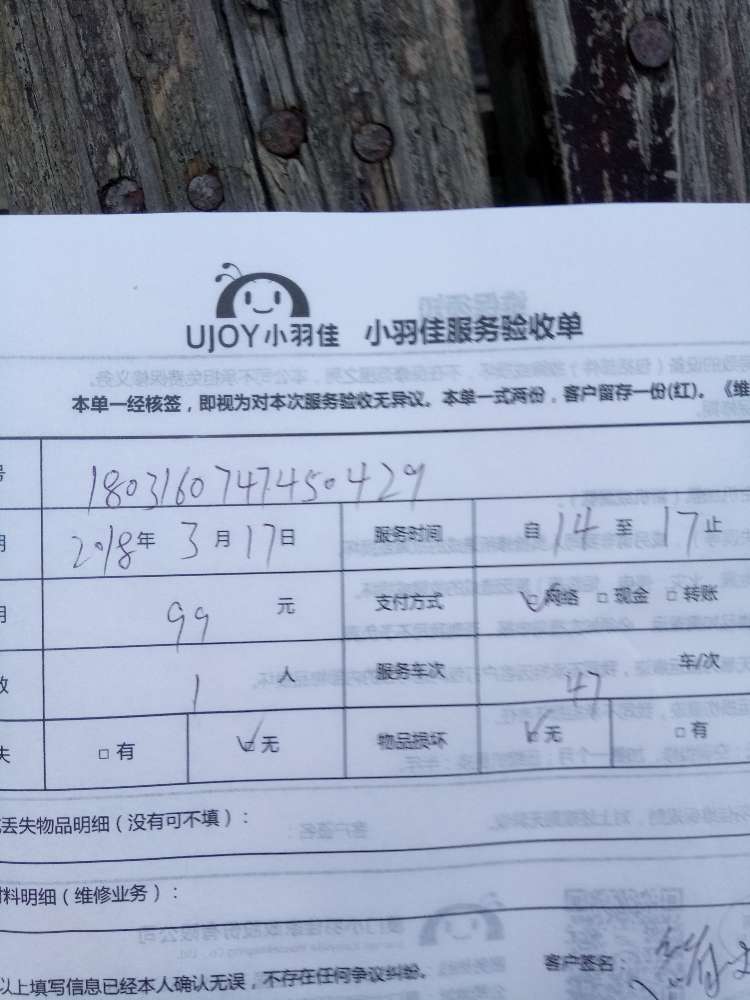 UJOY小羽佳 小羽佳服务验收单
本单一经核签，即视为对本次服务验收无异议。本单一式两份，客户留存一份(红)。《维
号 1803160747450429
期 2018年 3月17日 服务时间 自14至17止
用 99 元 支付方式 ☑网络 □现金 □转账
数 1 人 服务车次 47 车/次
失 □有 ☑无 物品损坏 ☑无 □有
丢失物品明细（没有可不填）：
材料明细（维修业务）：
以上填写信息已经本人确认无误，不存在任何争议纠纷。 客户签名：